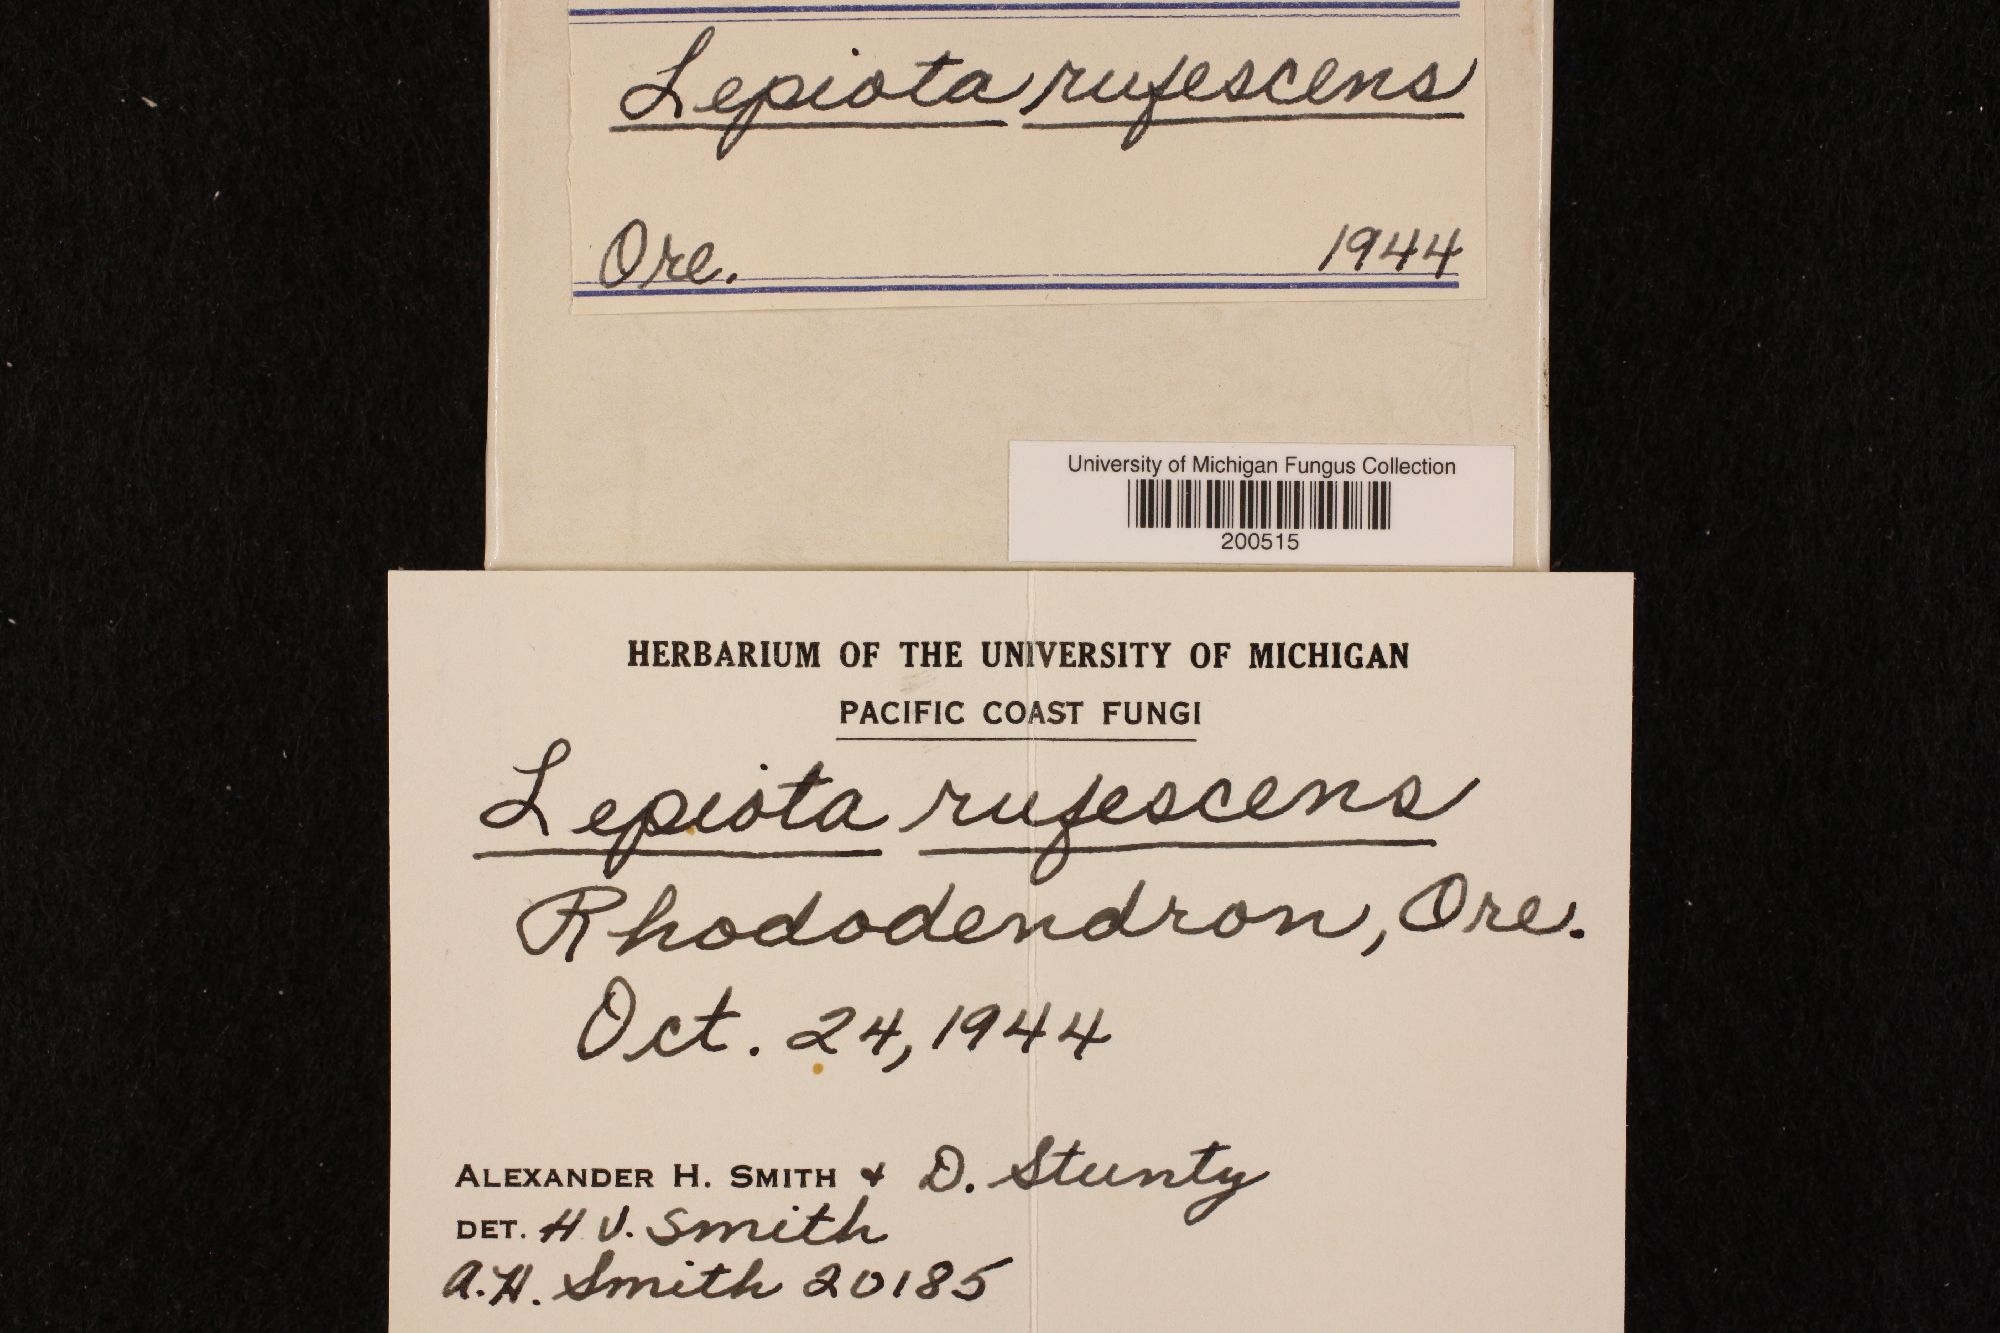 Lepiota rufescens
Ore. 1944
University of Michigan Fungus Collection
200515
HERBARIUM OF THE UNIVERSITY OF MICHIGAN
PACIFIC COAST FUNGI
Lepiota rufescens
Rhododendron, Ore.
Oct. 24, 1944
ALEXANDER H. SMITH & D. Stuntz
DET. H V. Smith
A.H. Smith 20185